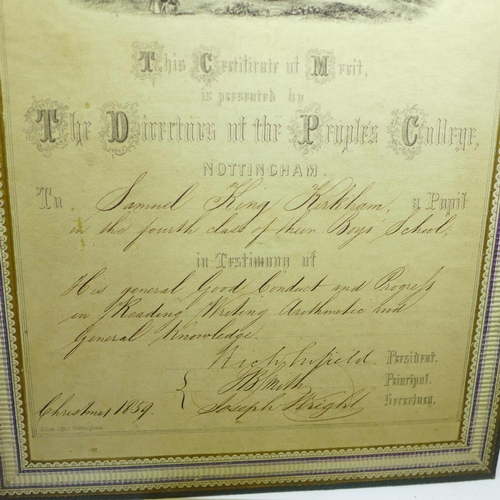 This Certificate of Merit,
is presented by
The Directors of the People's College,
NOTTINGHAM.
To Samuel King Kirkham, a Pupil
in the fourth class of their Boys School;
in Testimony of
His general Good Conduct and Progress
in Reading Writing Arithmetic and
General Knowledge.
President.
Principal.
Christmas 1859. Joseph Wright Secretary.